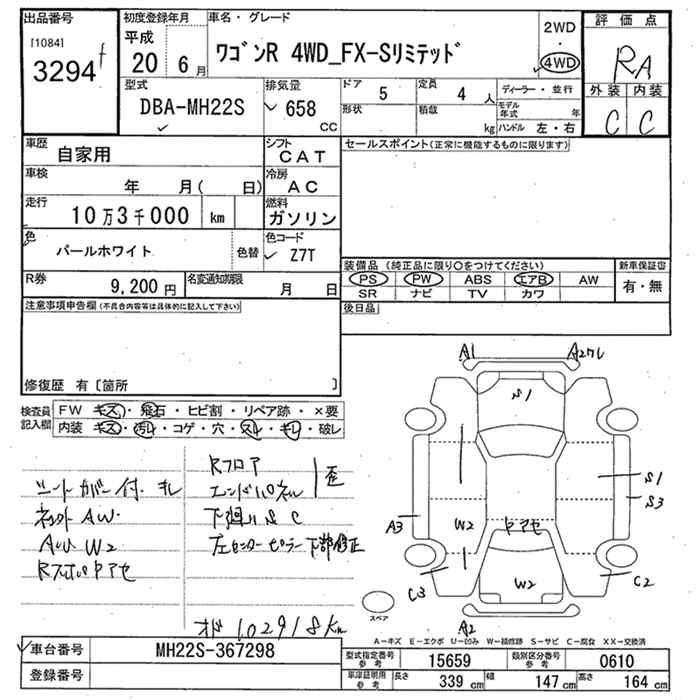 出品番号
[1084]
3294
初度登録年月
平成
20 6 月
車名・グレード
ワゴンR 4WD_FX-Sリミテッド
2WD
4WD
評価点
RA
外装 内装
C C
型式
DBA-MH22S
排気量
658
CC
ドア
5
定員
4 人
形状
積載
kg
ディーラー・並行
モデル年式 年
ハンドル 左・右
車歴
自家用
シフト
CAT
セールスポイント(正常に機能するものに限ります)
車検
年 月( 日)
冷房
AC
走行
10万3千000 km
燃料
ガソリン
色
パールホワイト
色替
色コード
Z7T
装備品 (純正品に限り○をつけてください)
新車保証書
PS PW ABS エアB AW
有・無
SR ナビ TV カワ
R券
9,200 円
名変通知期限
月 日
後日品
注意事項申告欄(不具合内容等は具体的に記入して下さい)
修復歴 有〔箇所 〕
検査員記入欄
FW キズ・飛石・ヒビ割・リペア跡・×要
内装 キズ・汚レ・コゲ・穴・スレ・キレ・破レ
シートカバー付・キレ
AW
W2
Rフロア
エンドパネル
歪
下廻りS C
左センターピラー下部修正
102918km
A1
S1
S1
S3
A3
W2
W2
C3
C2
A2
スペア
A-キズ E-エクボ U-凹み W-補修跡 S-サビ C-腐食 XX-交換済
車台番号
MH22S-367298
登録番号
型式指定番号 参考
15659
類別区分番号 参考
0610
車庫証明用 参考
長さ
339 cm
幅
147 cm
高さ
164 cm